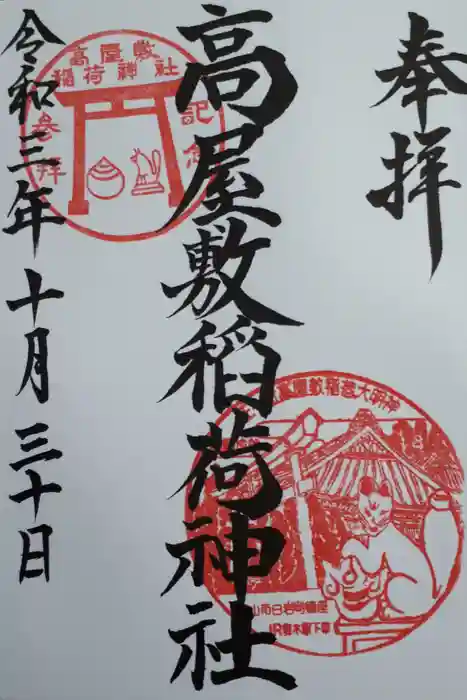 奉拝
高屋敷稲荷神社
令和三年十月三十日
高屋敷
稲荷神社
参拝
記念
高屋敷稲荷大明神